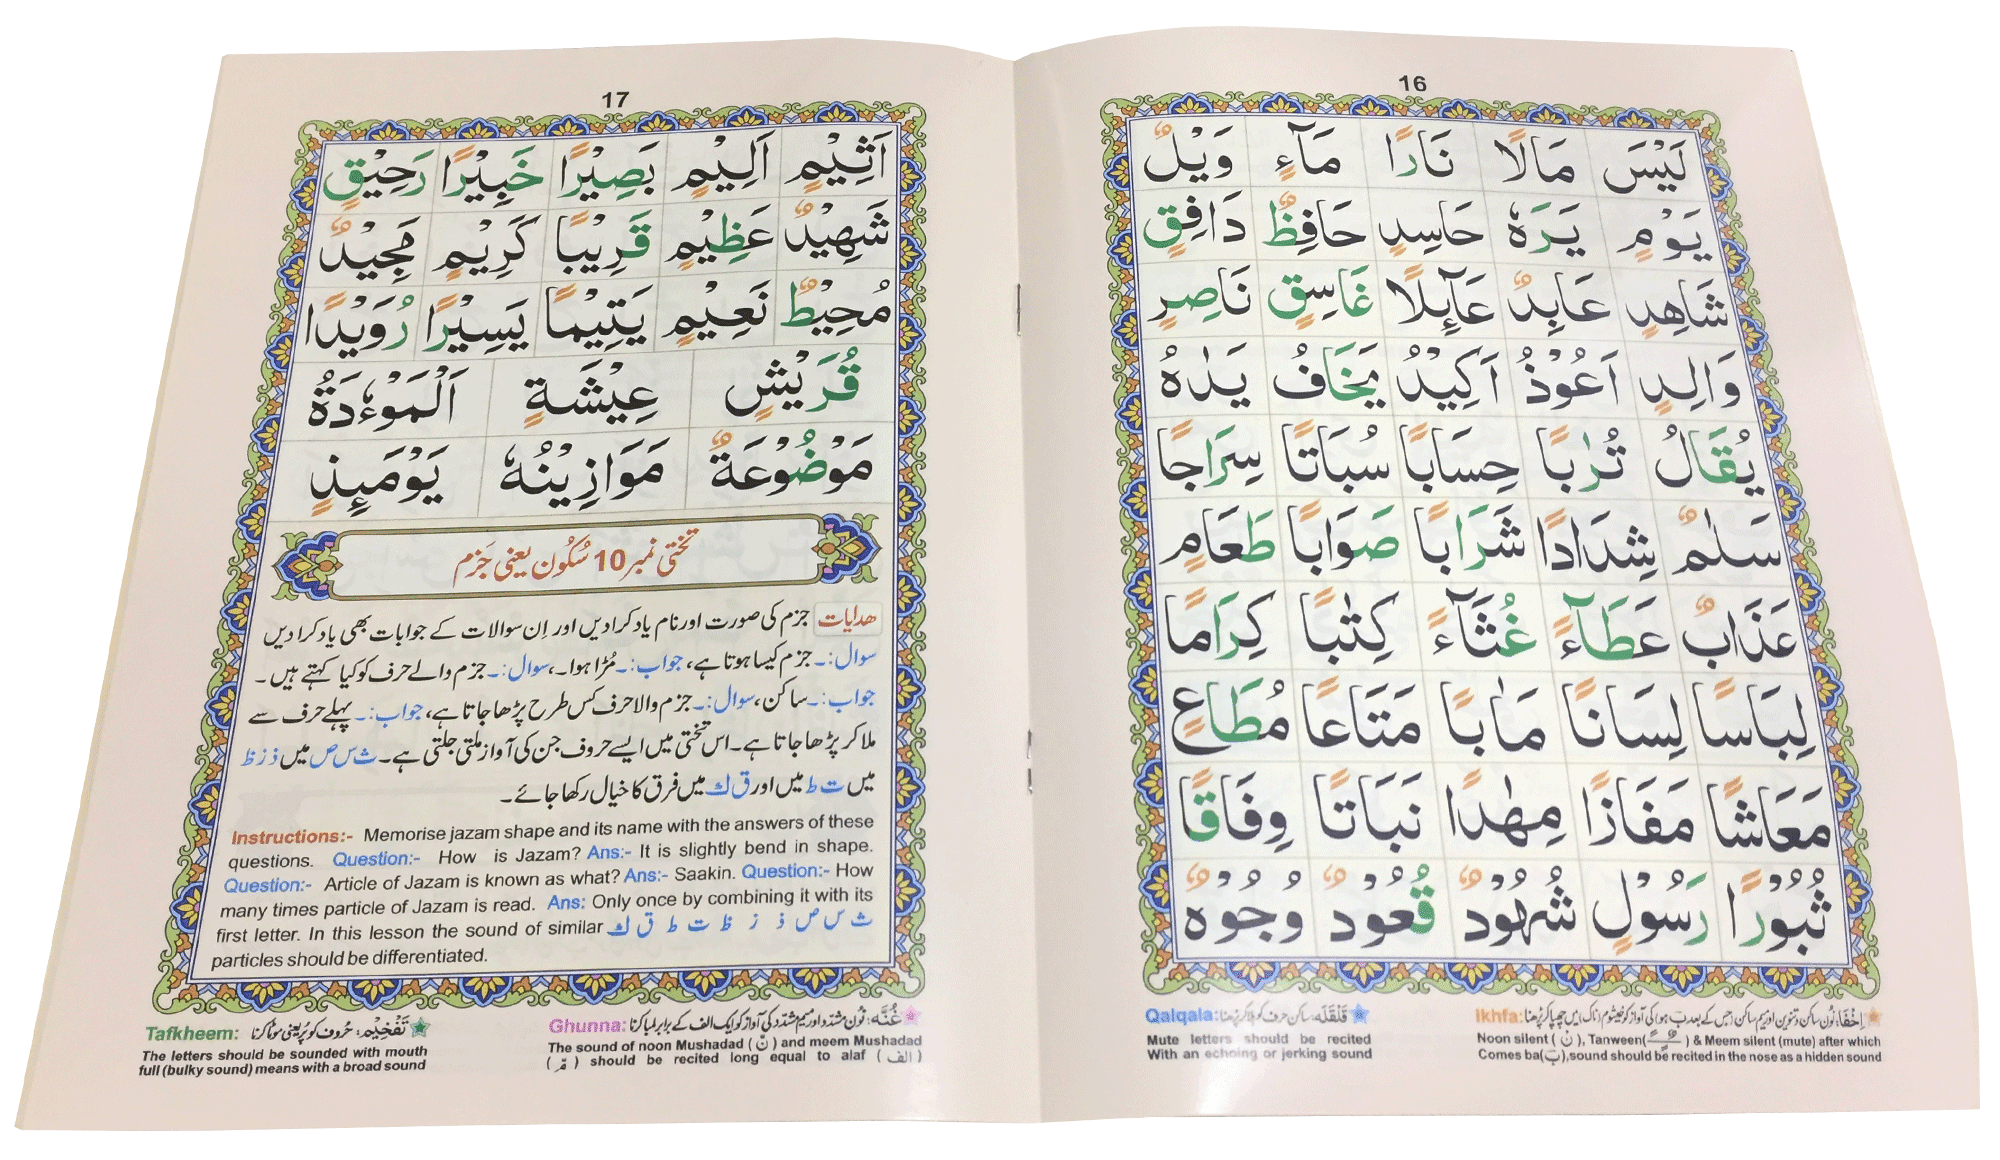 16
لَيْسَ مَالًا نَارًا مَآءٍ وَيْلٌ
يَوْمٍ يَرَهٗ حَاسِدٍ حَافِظٌ دَافِقٍ
شَاهِدٍ عَابِدٌ عَآئِلًا غَاسِقٍ نَاصِرٍ
وَالِدٍ اَعُوْذُ اَكِيْدُ يَخَافُ يَدٰهُ
يُقَالُ تُرٰبًا حِسَابًا سُبَاتًا سِرَاجًا
سَلٰمٌ شِدَادًا شَرَابًا صَوَابًا طَعَامٍ
عَذَابٌ عَطَآءً غُثَآءً كِتٰبًا كِرَامًا
لِبَاسًا لِسَانًا مَاٰبًا مَتَاعًا مُطَاعٍ
مَعَاشًا مَفَازًا مِهٰدًا نَبَاتًا وِفَاقًا
ثُبُوْرًا رَسُوْلٍ شُهُوْدٌ قُعُوْدٌ وُجُوْهٌ
Ikhfa: اِخْفَا: نُون ساکن و تنوین اور میم ساکن جس کے بعد ب ہو اِن کی آواز کو خیشوم (ناک) میں چھپا کر پڑھنا
Noon silent ( نْ ), Tanween( ـًـٍـٌ ) & Meem silent (mute) after which
Comes ba(ب),sound should be recited in the nose as a hidden sound
Qalqala: قَلْقَلَه: ساکن حرف کو ہلا کر پڑھنا
Mute letters should be recited
With an echoing or jerking sound
17
اَثِيْمٍ اَلِيْمٍ بَصِيْرًا خَبِيْرًا رَحِيْقٍ
شَهِيْدٌ عَظِيْمٍ قَرِيْبًا كَرِيْمٍ مَجِيْدٌ
مُحِيْطٌ نَعِيْمٍ يَتِيْمًا يَسِيْرًا رُوَيْدًا
قُرَيْشٍ عِيْشَةٍ اَلْمَوْءٗدَةُ
مَوْضُوْعَةٌ مَوَازِيْنُهٗ يَوْمَئِذٍ
تختی نمبر 10 سُکُون یعنی جَزم
ھدایات جزم کی صورت اور نام یاد کرادیں اور اِن سوالات کے جوابات بھی یاد کرادیں
سوال:۔ جزم کیسا ہوتا ہے، جواب:۔ مُڑا ہوا۔، سوال:۔ جزم والے حرف کو کیا کہتے ہیں۔
جواب:۔ ساکن، سوال:۔ جزم والا حرف کس طرح پڑھا جاتا ہے، جواب:۔ پہلے حرف سے
ملا کر پڑھا جاتا ہے۔ اس تختی میں ایسے حروف جن کی آواز ملتی جلتی ہے۔ ث س ص میں ذ ز ظ
میں ت ط میں اور ق ك میں فرق کا خیال رکھا جائے۔
Instructions:- Memorise jazam shape and its name with the answers of these
questions. Question:- How is Jazam? Ans:- It is slightly bend in shape.
Question:- Article of Jazam is known as what? Ans:- Saakin. Question:- How
many times particle of Jazam is read. Ans: Only once by combining it with its
first letter. In this lesson the sound of similar ث س ص ذ ز ظ ت ط ق ك
particles should be differentiated.
Ghunna: غُنَّه: نُون مشدّد اور میم مشدّد کی آواز کو ایک الف کے برابر لمبا کرنا
The sound of noon Mushadad ( نّ ) and meem Mushadad
( مّ ) should be recited long equal to alaf ( الف )
Tafkheem: تَفْخِيْم: حُروف کو پُر یعنی موٹا کرنا
The letters should be sounded with mouth
full (bulky sound) means with a broad sound